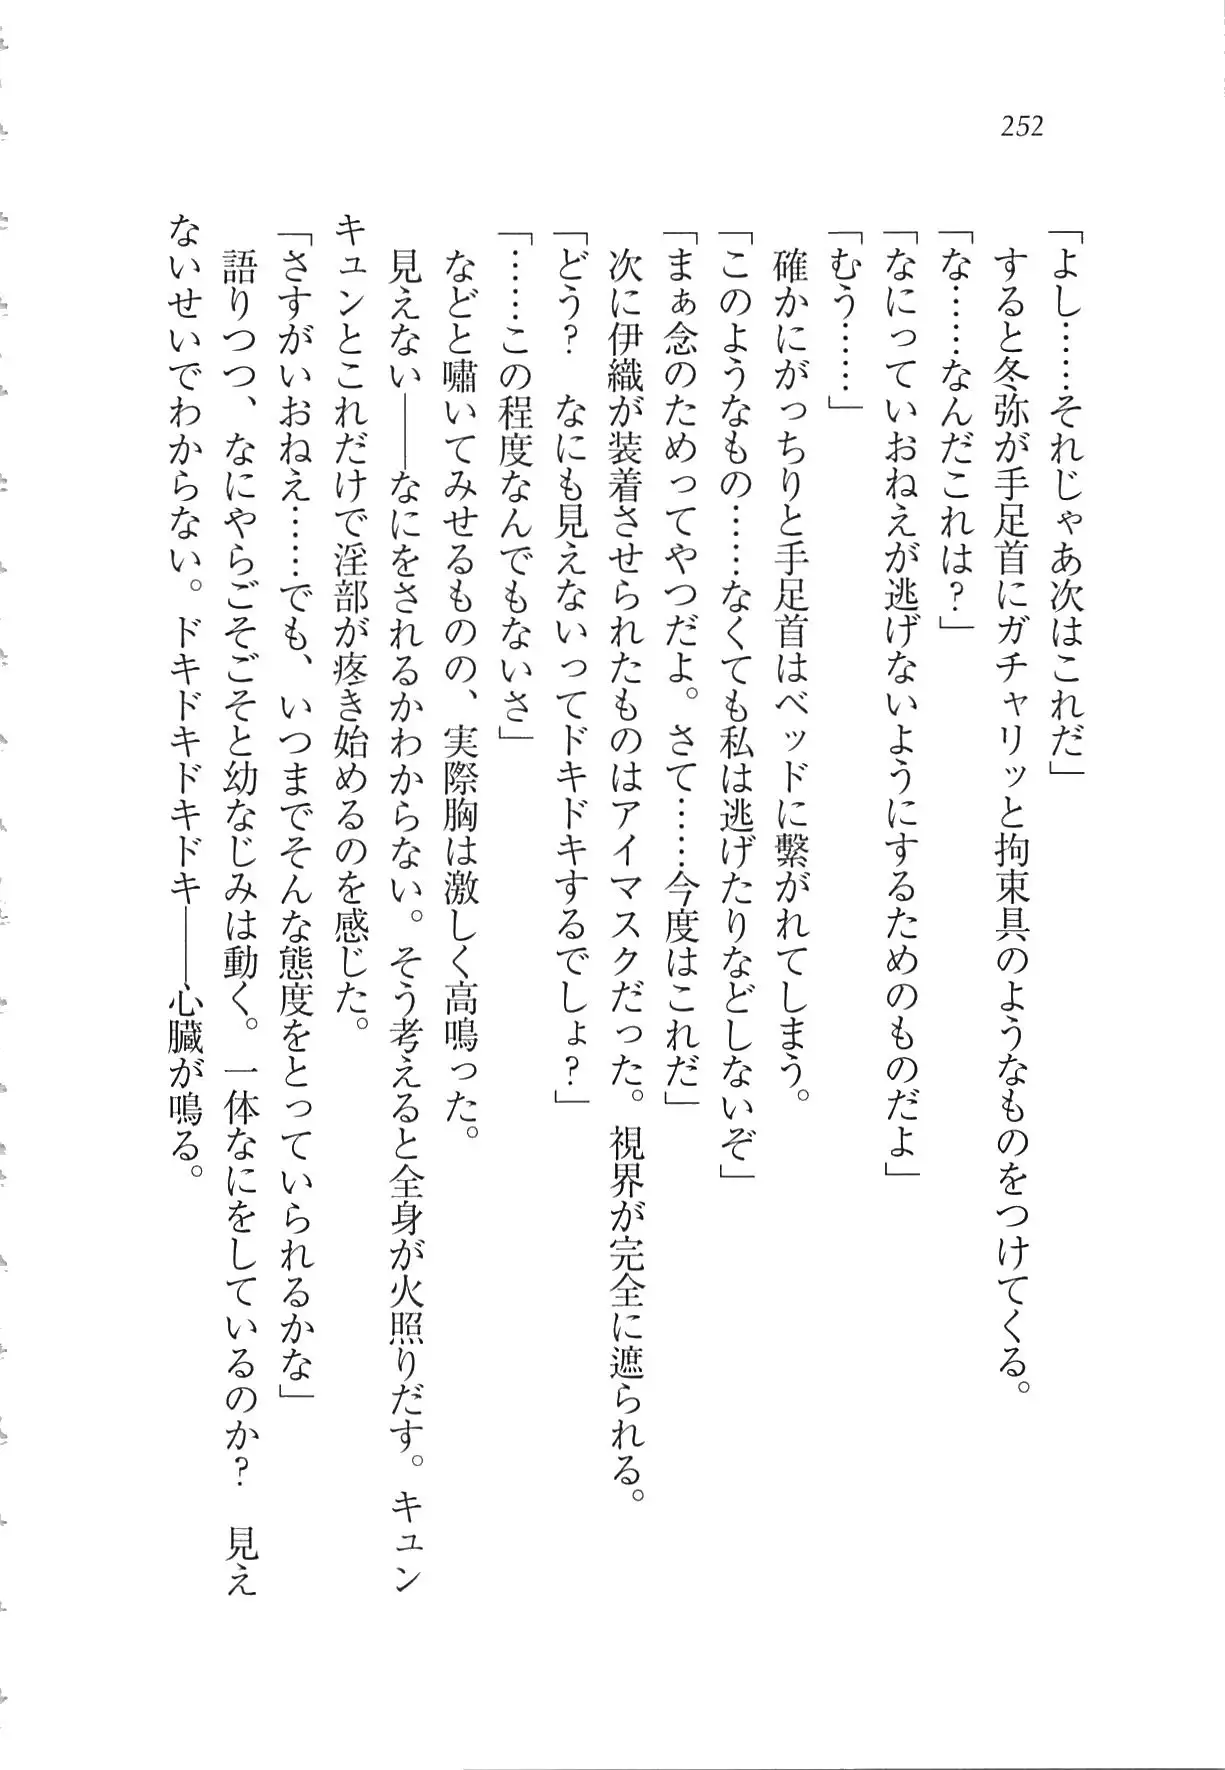 252
「よし……それじゃあ次はこれだ」
すると冬弥が手足首にガチャリッと拘束具のようなものをつけてくる。
「な……なんだこれは？」
「なにっていおねえが逃げないようにするためのものだよ」
「むう……」
確かにがっちりと手足首はベッドに繋がれてしまう。
「このようなもの……なくても私は逃げたりなどしないぞ」
「まぁ念のためってやつだよ。さて……今度はこれだ」
次に伊織が装着させられたものはアイマスクだった。視界が完全に遮られる。
「どう？　なにも見えないってドキドキするでしょ？」
「……この程度なんでもないさ」
などと嘯いてみせるものの、実際胸は激しく高鳴った。
見えない――なにをされるかわからない。そう考えると全身が火照りだす。キュン
キュンとこれだけで淫部が疼き始めるのを感じた。
「さすがいおねえ……でも、いつまでそんな態度をとっていられるかな」
語りつつ、なにやらごそごそと幼なじみは動く。一体なにをしているのか？　見え
ないせいでわからない。ドキドキドキドキ――心臓が鳴る。